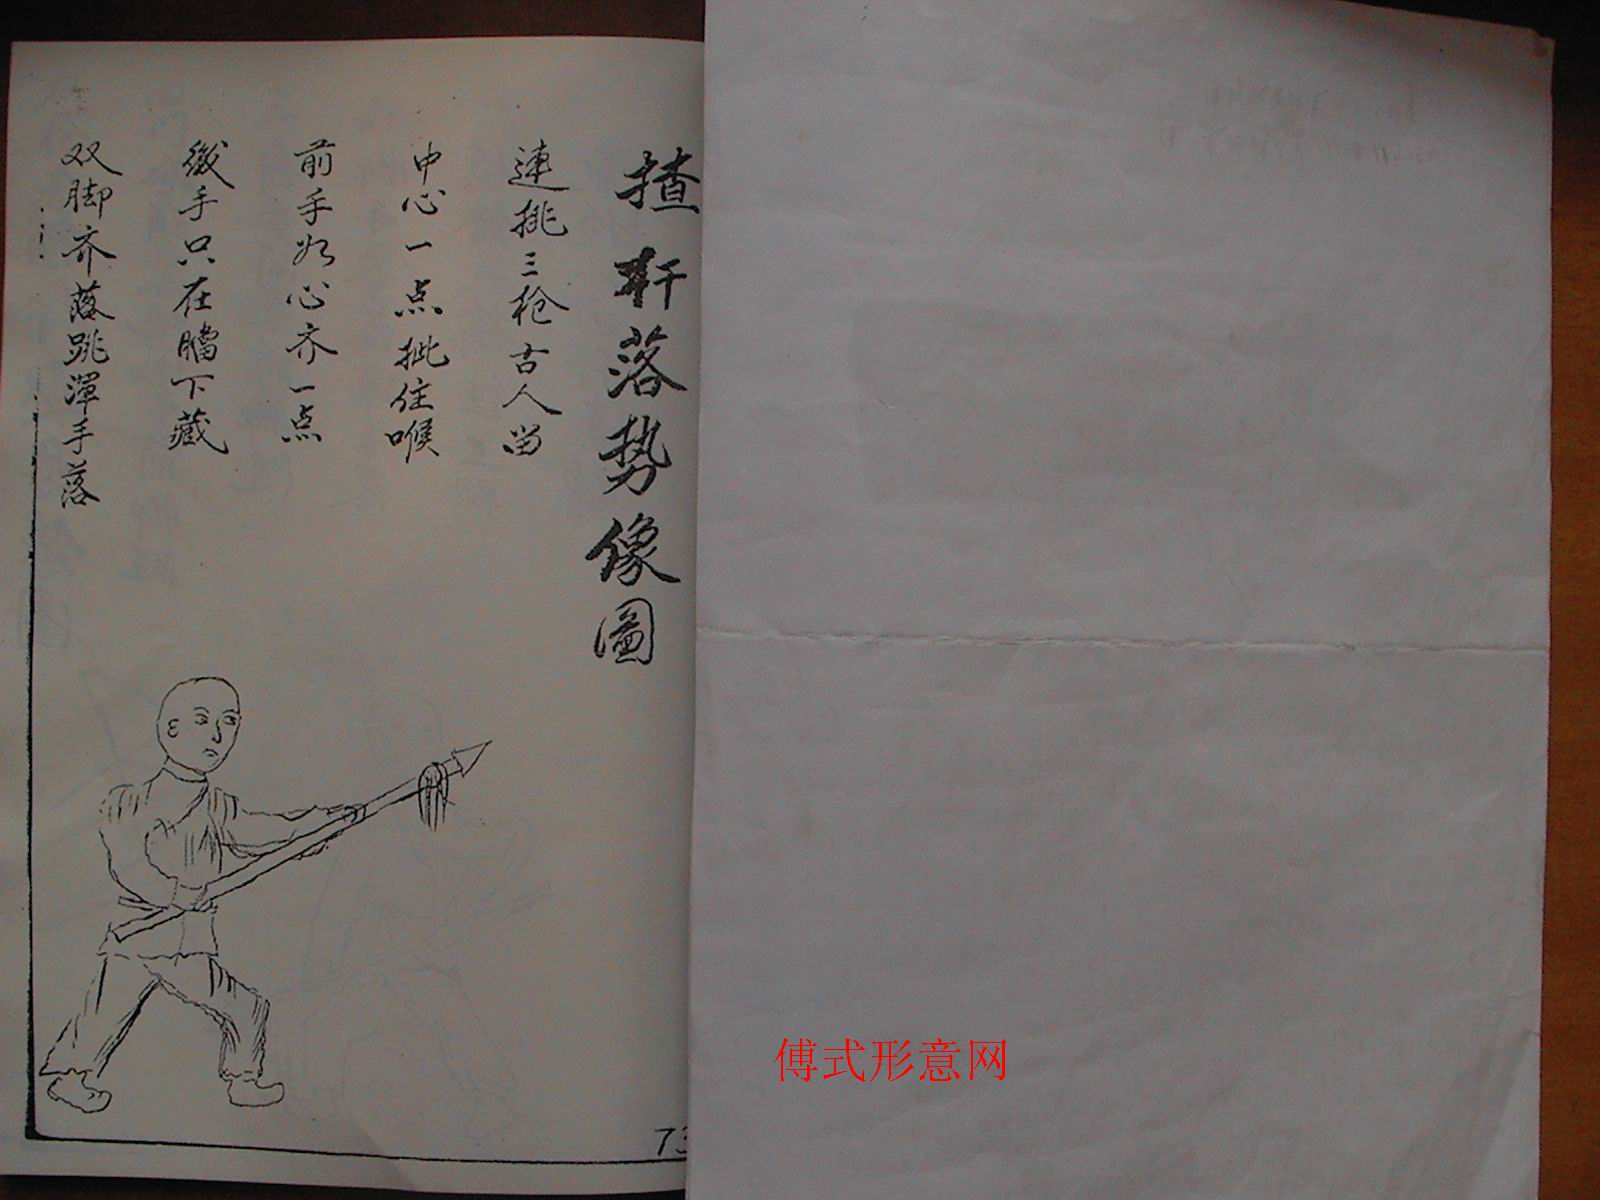 揸軒落势像圖
連挑三枪古人留
中心一点批住喉
前手如心齐一点
手只在膽下藏
双脚齐落跳渾手落
73
傅式形意网